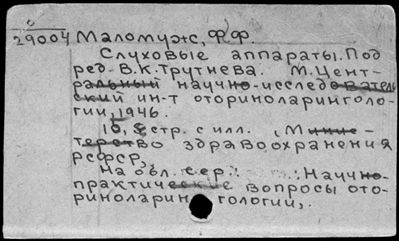 29004 Маломуж, Ф.Ф.
Слуховые аппараты. Под
ред. В.К. Трутнева. М. Цент-
ральный научно-исследователь
ский ин-т оториноларинголо-
гии, 1946.
стр. с илл. (Минис-
терство здравоохранения
РСФСР,
На обл. сер.: Научно-
практические вопросы ото-
риноларингологии,.